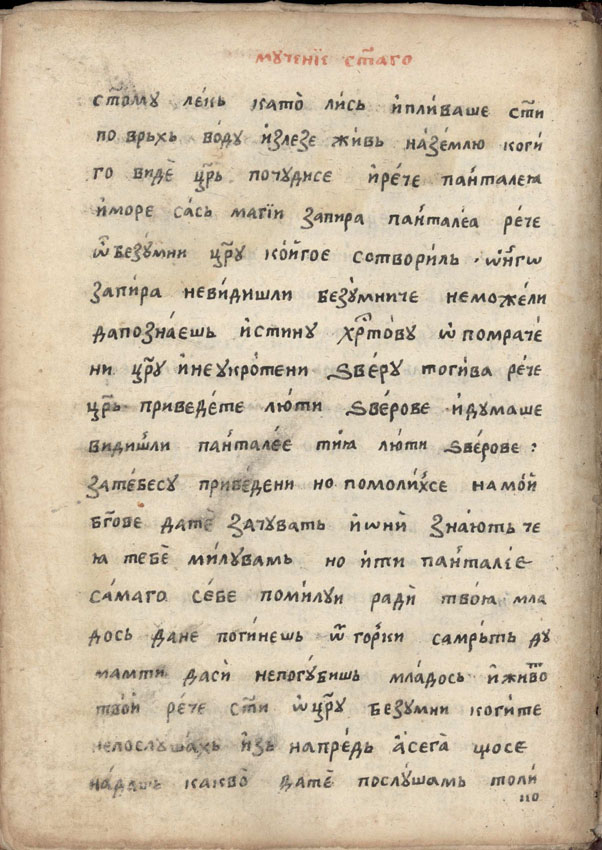 мꙋченїе ст҃аго
ст҃омꙋ лекь като̀ ли́сь и҆пли́ваше ст҃и
по врьхь во́дꙋ и҆злезе жи́вь назе́млю коги́
го виде̏ цр҃ь почꙋдисе и҆ре́че панталеꙗ
и҆море са́сь магїи запира панталеа рече
ѿ безꙋ́мни цр҃ꙋ ко́йгое сотвори́ль · ѡ҆нгѡ
запи́ра неви́дишли безꙋ́мниче неможе́ли
дапозна́ешь и҆стинꙋ хр҃то́вꙋ ѡ҆ помраче́
ни цр҃ꙋ и҆неꙋкро́тени ѕве́рꙋ тоги́ва ре́че
цр҃ь приведе́те лю́ти ѕве́рове и҆дꙋмаше
види́шли пантале́е ти́ꙗ лю́ти ѕве́рове :
зате́бесꙋ приве́дени но помоли́хсе намой
бг҃ове дате̏ зачꙋвать и҆ѡни̏ зна́ють че
ꙗ тебе̏ ми́лꙋвамь но и҆ти панталїе
са́маго се́бе поми́лꙋи ради̏ тво́ꙗ мла
дось дане поги́нешь ѿ го́рки самрьть дꙋ
мамти даси̏ непогꙋ́бишь мла́дось и҆живо̑т
твои̏ ре́че ст҃и ѡ҆ цр҃ꙋ безꙋмни когите
непослꙋ́шахь и҆зь напре́дь а҆сега̀ щосе
на́дашь какво̏ дате̏ послꙋ́шамь толи́
110